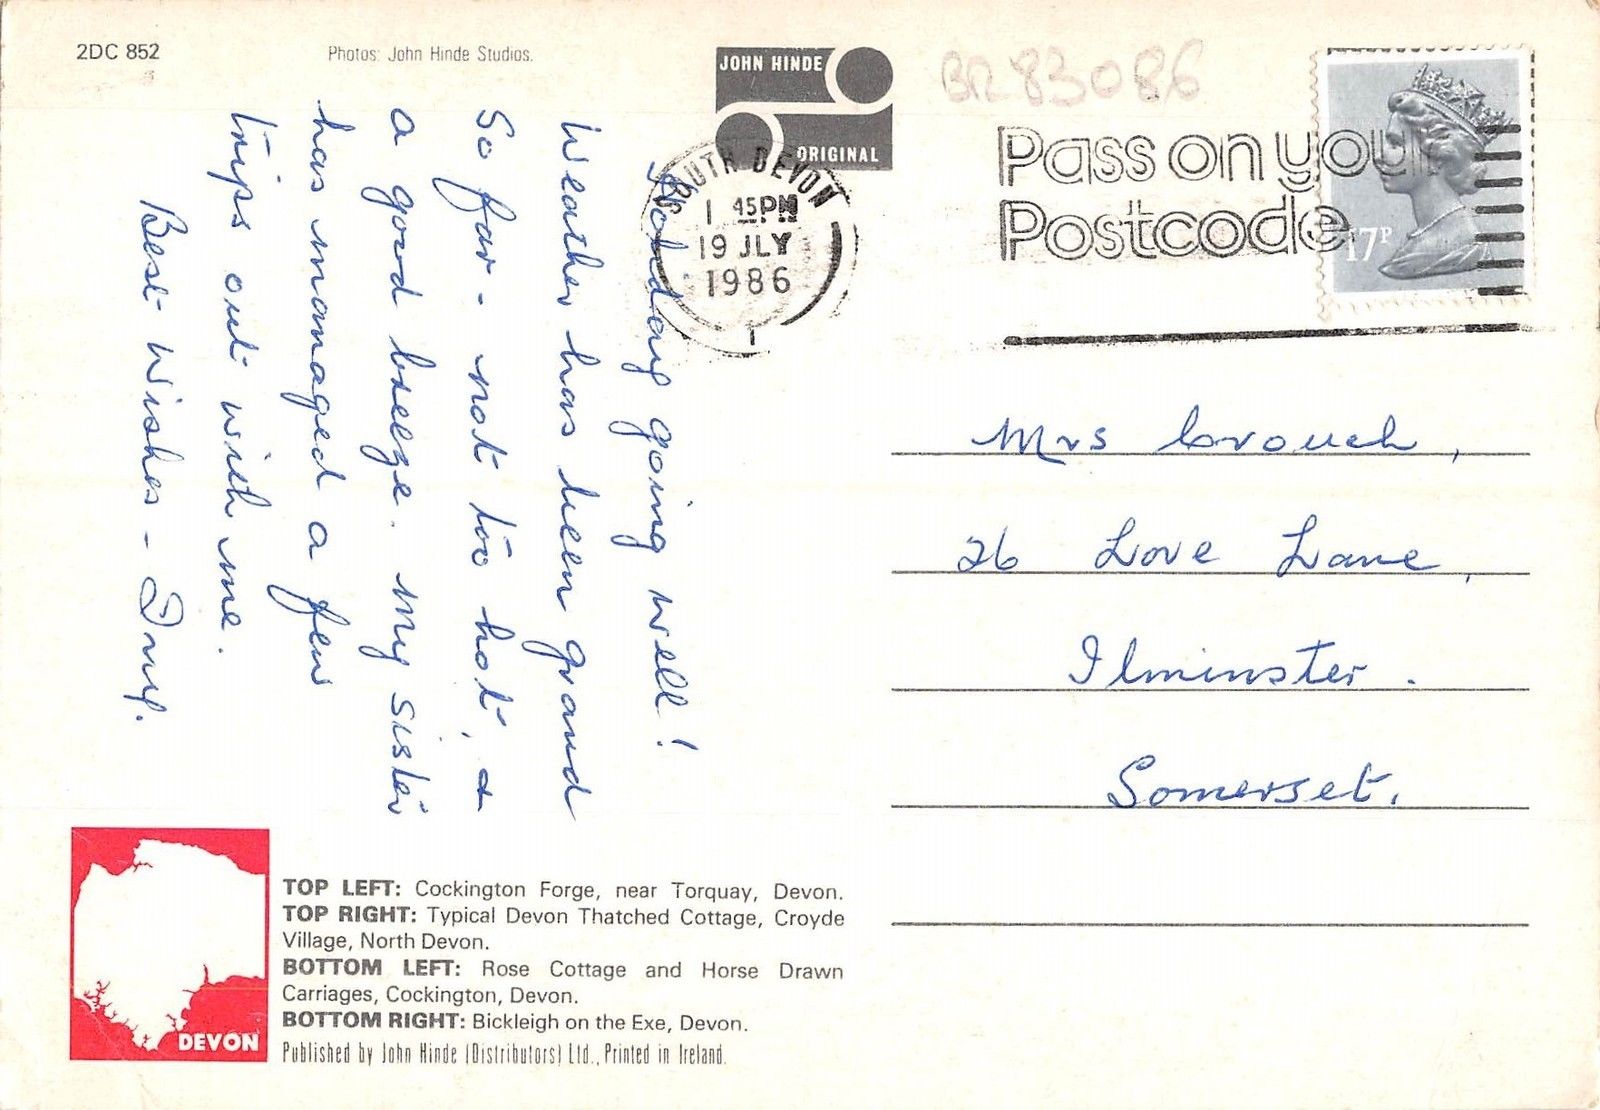 2DC 852
Photos: John Hinde Studios.
JOHN HINDE
ORIGINAL
BR83086
SOUTH DEVON
1 45PM
19 JLY
1986
1
Pass on your
Postcode
17P
Holiday going well!
Weather has been grand
so far - not too hot, &
a good breeze. My sister
has managed a few
trips out with me.
Best Wishes -
Mrs Crouch,
26 Love Lane,
Ilminster.
Somerset.
DEVON
TOP LEFT: Cockington Forge, near Torquay, Devon.
TOP RIGHT: Typical Devon Thatched Cottage, Croyde
Village, North Devon.
BOTTOM LEFT: Rose Cottage and Horse Drawn
Carriages, Cockington, Devon.
BOTTOM RIGHT: Bickleigh on the Exe, Devon.
Published by John Hinde (Distributors) Ltd., Printed in Ireland.